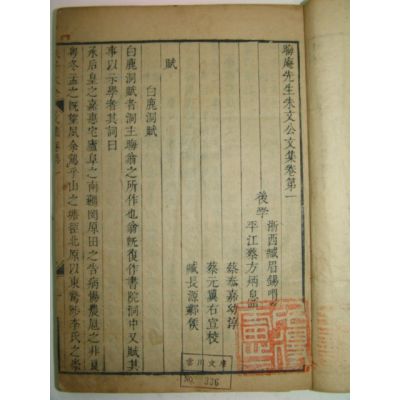 晦庵先生朱文公文集卷第一
後學
浙西臧眉錫喟
平江蔡方炳息
蔡泰嘉幼淳
蔡元翼右宣校
臧長源鄴侯
賦
白鹿洞賦
白鹿洞賦者洞主晦翁之所作也翁既復作書院洞中又賦其
事以示學者其詞曰
承后皇之嘉惠宅廬阜之南疆閔原田之告病惕農扈之非良
粤冬孟之既望夙余駕乎山之塘徑北原以東騖陟李氏之崇
雲川文庫
No. 336